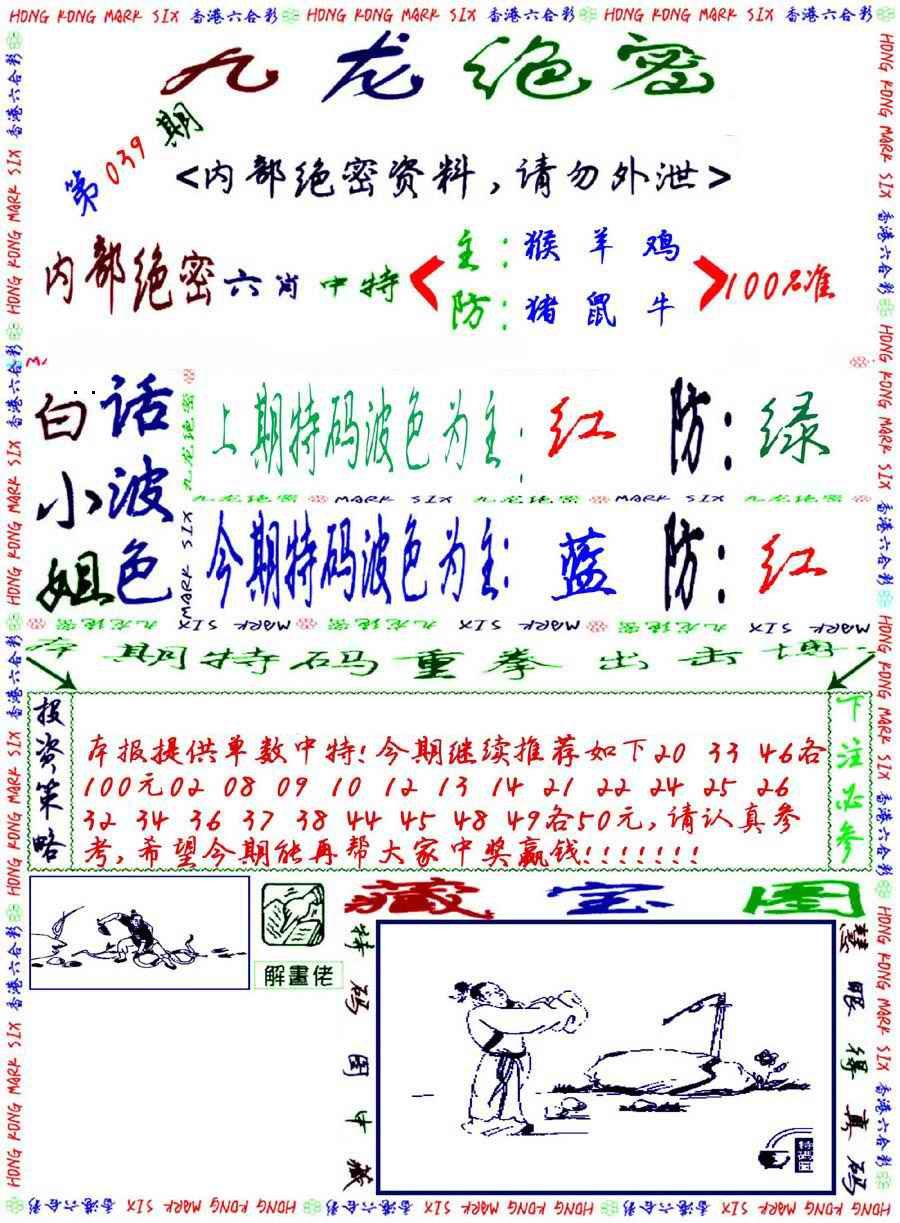 HONG KONG MARK SIX 香港六合彩 HONG KONG MARK SIX 香港六合彩 HONG KONG MARK SIX 香港六合彩
九龙绝密
第039期
<内部绝密资料,请勿外泄>
内部绝密六肖中特
主:猴 羊 鸡
防:猪 鼠 牛
100%准
白话
小波
姐色
上期特码波色为主:红 防:绿
九龙绝密 MARK SIX 九龙绝密 MARK SIX 九龙绝密
今期特码波色为主:蓝 防:红
本期特码重拳出击博
报资策略
本报提供单数中特!今期继续推荐如下20 33 46各
100元02 08 09 10 12 13 14 21 22 24 25 26
32 34 36 37 38 44 45 48 49各50元,请认真参
考,希望今期能再帮大家中奖赢钱!!!!!!!
下注必参
藏宝图
解畫佬
特码图中藏
慧眼得真码
特碼圖
HONG KONG MARK SIX 香港六合彩